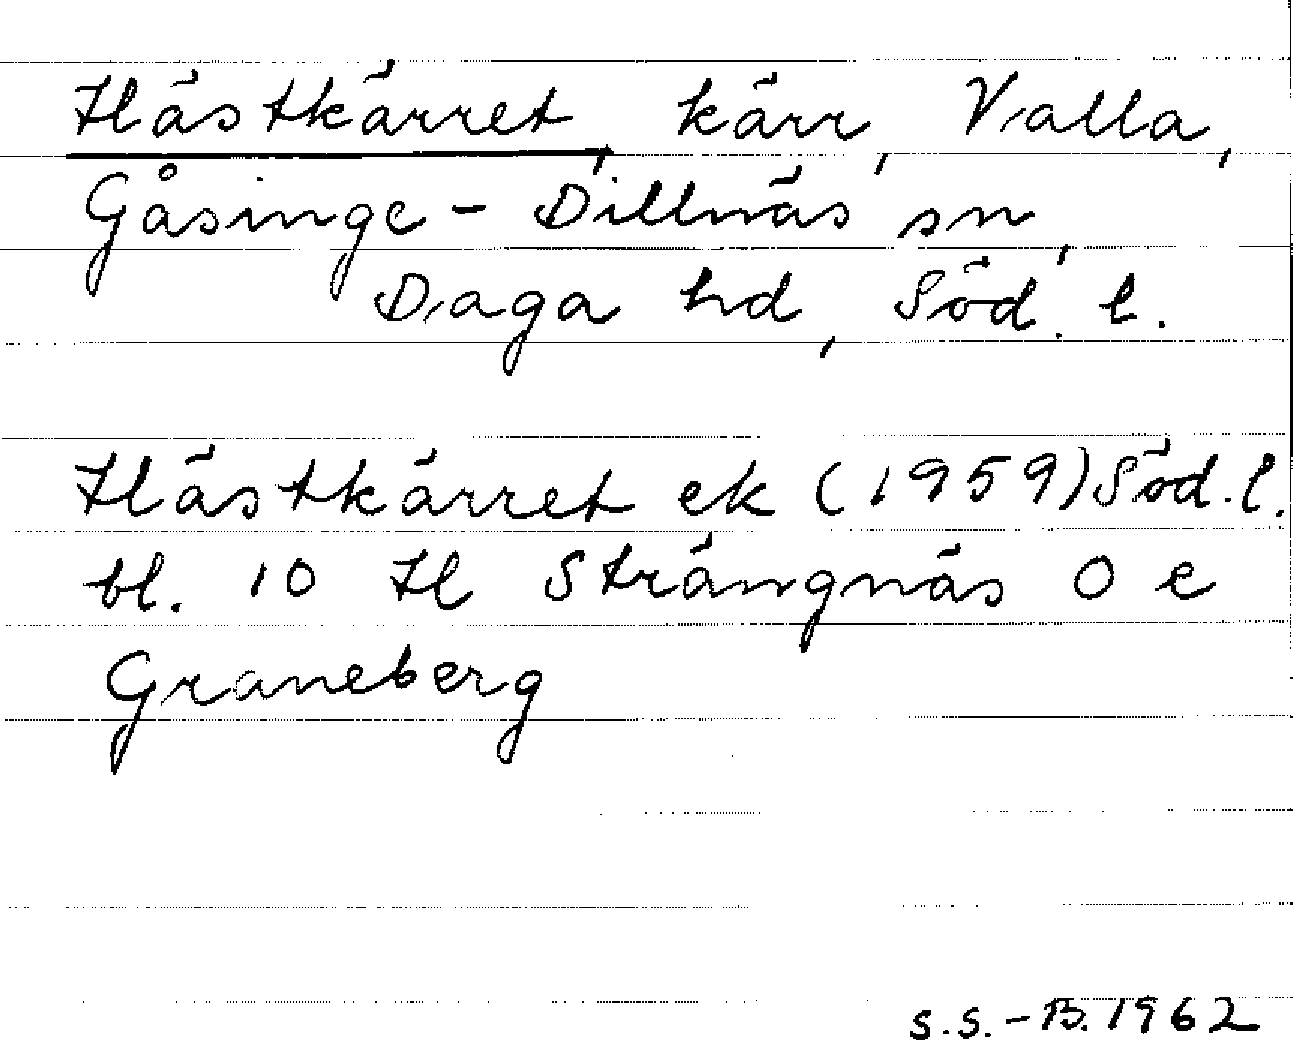 Hästkärret, kärr, Valla,
Gåsinge - Dillnäs sn,
Daga hd, Söd. l.
Hästkärret ek (1959) Söd. l.
bl. 10 H Strängnäs O e
Graneberg
S.S.-B. 1962